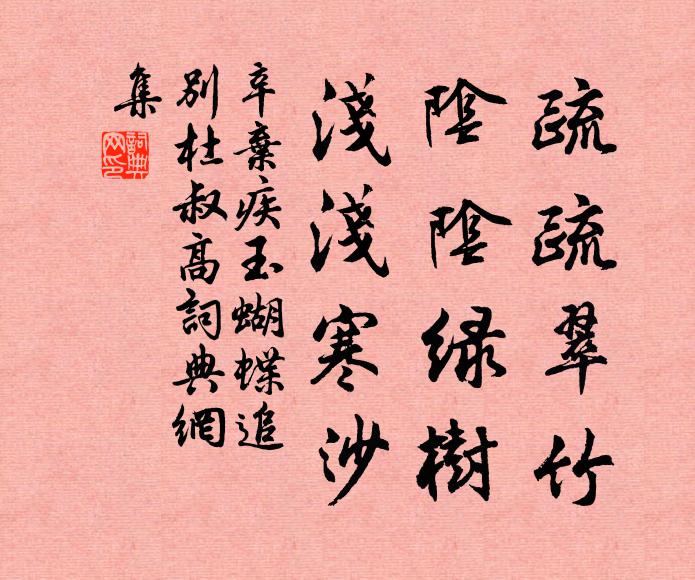 疏疏翠竹
陰陰綠樹
淺淺寒沙
辛棄疾玉蝴蝶追
別杜叔高詞典網
集
詞典
网印